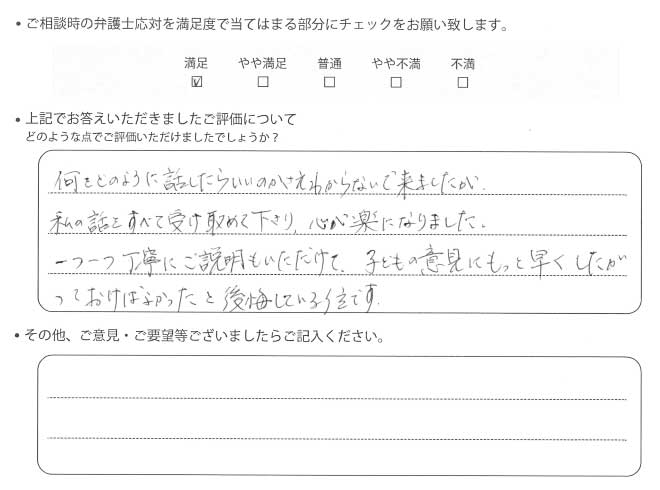 ・ご相談時の弁護士応対を満足度で当てはまる部分にチェックをお願い致します。
満足 やや満足 普通 やや不満 不満
☑ □ □ □ □
・上記でお答えいただきましたご評価について
どのような点でご評価いただけましたでしょうか？
何をどのように話したらいいのかさえわからないで来ましたが、
私の話をすべて受け取めて下さり、心が楽になりました。
一つ一つ丁寧にご説明もいただけて、子どもの意見にもっと早くしたが
っておけばよかったと後悔している位です。
・その他、ご意見・ご要望等ございましたらご記入ください。